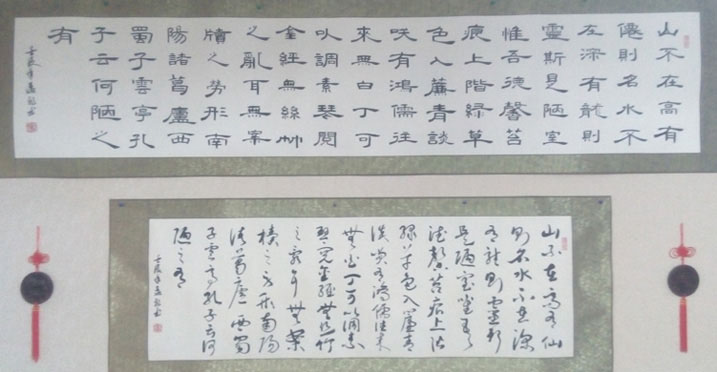 山不在高有
僊則名水不
在深有龍則
靈斯是陋室
惟吾德馨苔
痕上階緑草
色入簾青談
咲有鴻儒往
來無白丁可
以調素琴閲
金經無絲竹
之亂耳無案
牘之勞形南
陽諸葛廬西
蜀子雲亭孔
子云何陋之
有
壬辰年
山不在高有仙
則名水不在深
有龍則靈斯
是陋室惟吾
德馨苔痕上階
緑草色入簾青
談笑有鴻儒往來
無白丁可以調素
琴閲金經無絲竹
之亂耳無案
牘之勞形南陽
諸葛廬西蜀
子雲亭孔子云何
陋之有
壬辰年